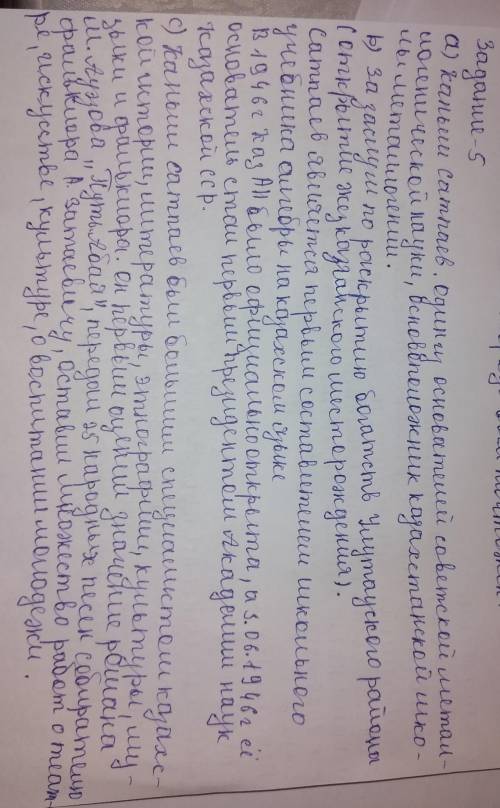 Задание-5
а) Каныш Сатпаев. один из основателей советской метал-
логенической науки, основоположник казахстанской шко-
лы металлогении.
b) За заслуги по раскрытию богатств Улутауского района
(открытие Жезказганского месторождения).
Сатпаев является первым составителем школьного
учебника алгебры на казахском языке
В 1946г Каз АН было официально открыта, а 3.06.1946г её
основатель стал первым президентом Академии наук
Казахской ССР.
с) Каныш Сатпаев был большим специалистом казахс-
кой истории, литературы, этнографии, культуры, му-
зыки и фольклора. Он первым оценил значение романа
М. Ауэзова „Путь Абая", передал 25 народных песен собирателю
фольклора А. Затаевичу, оставил множество работ о теат-
ре, искусстве, культуре, о воспитании молодежи.